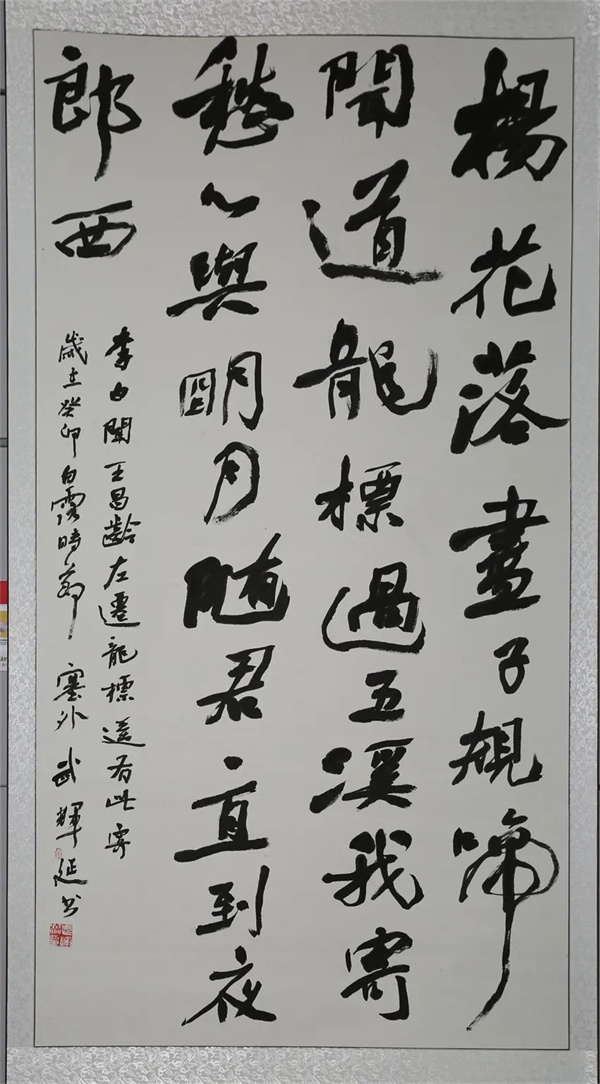 楊花落盡子規啼
聞道龍標過五溪我寄
愁心與明月随君直到夜
郎西
李白聞王昌齡左遷龍標遥有此寄
歲在癸卯白露時節 塞外武輝延书